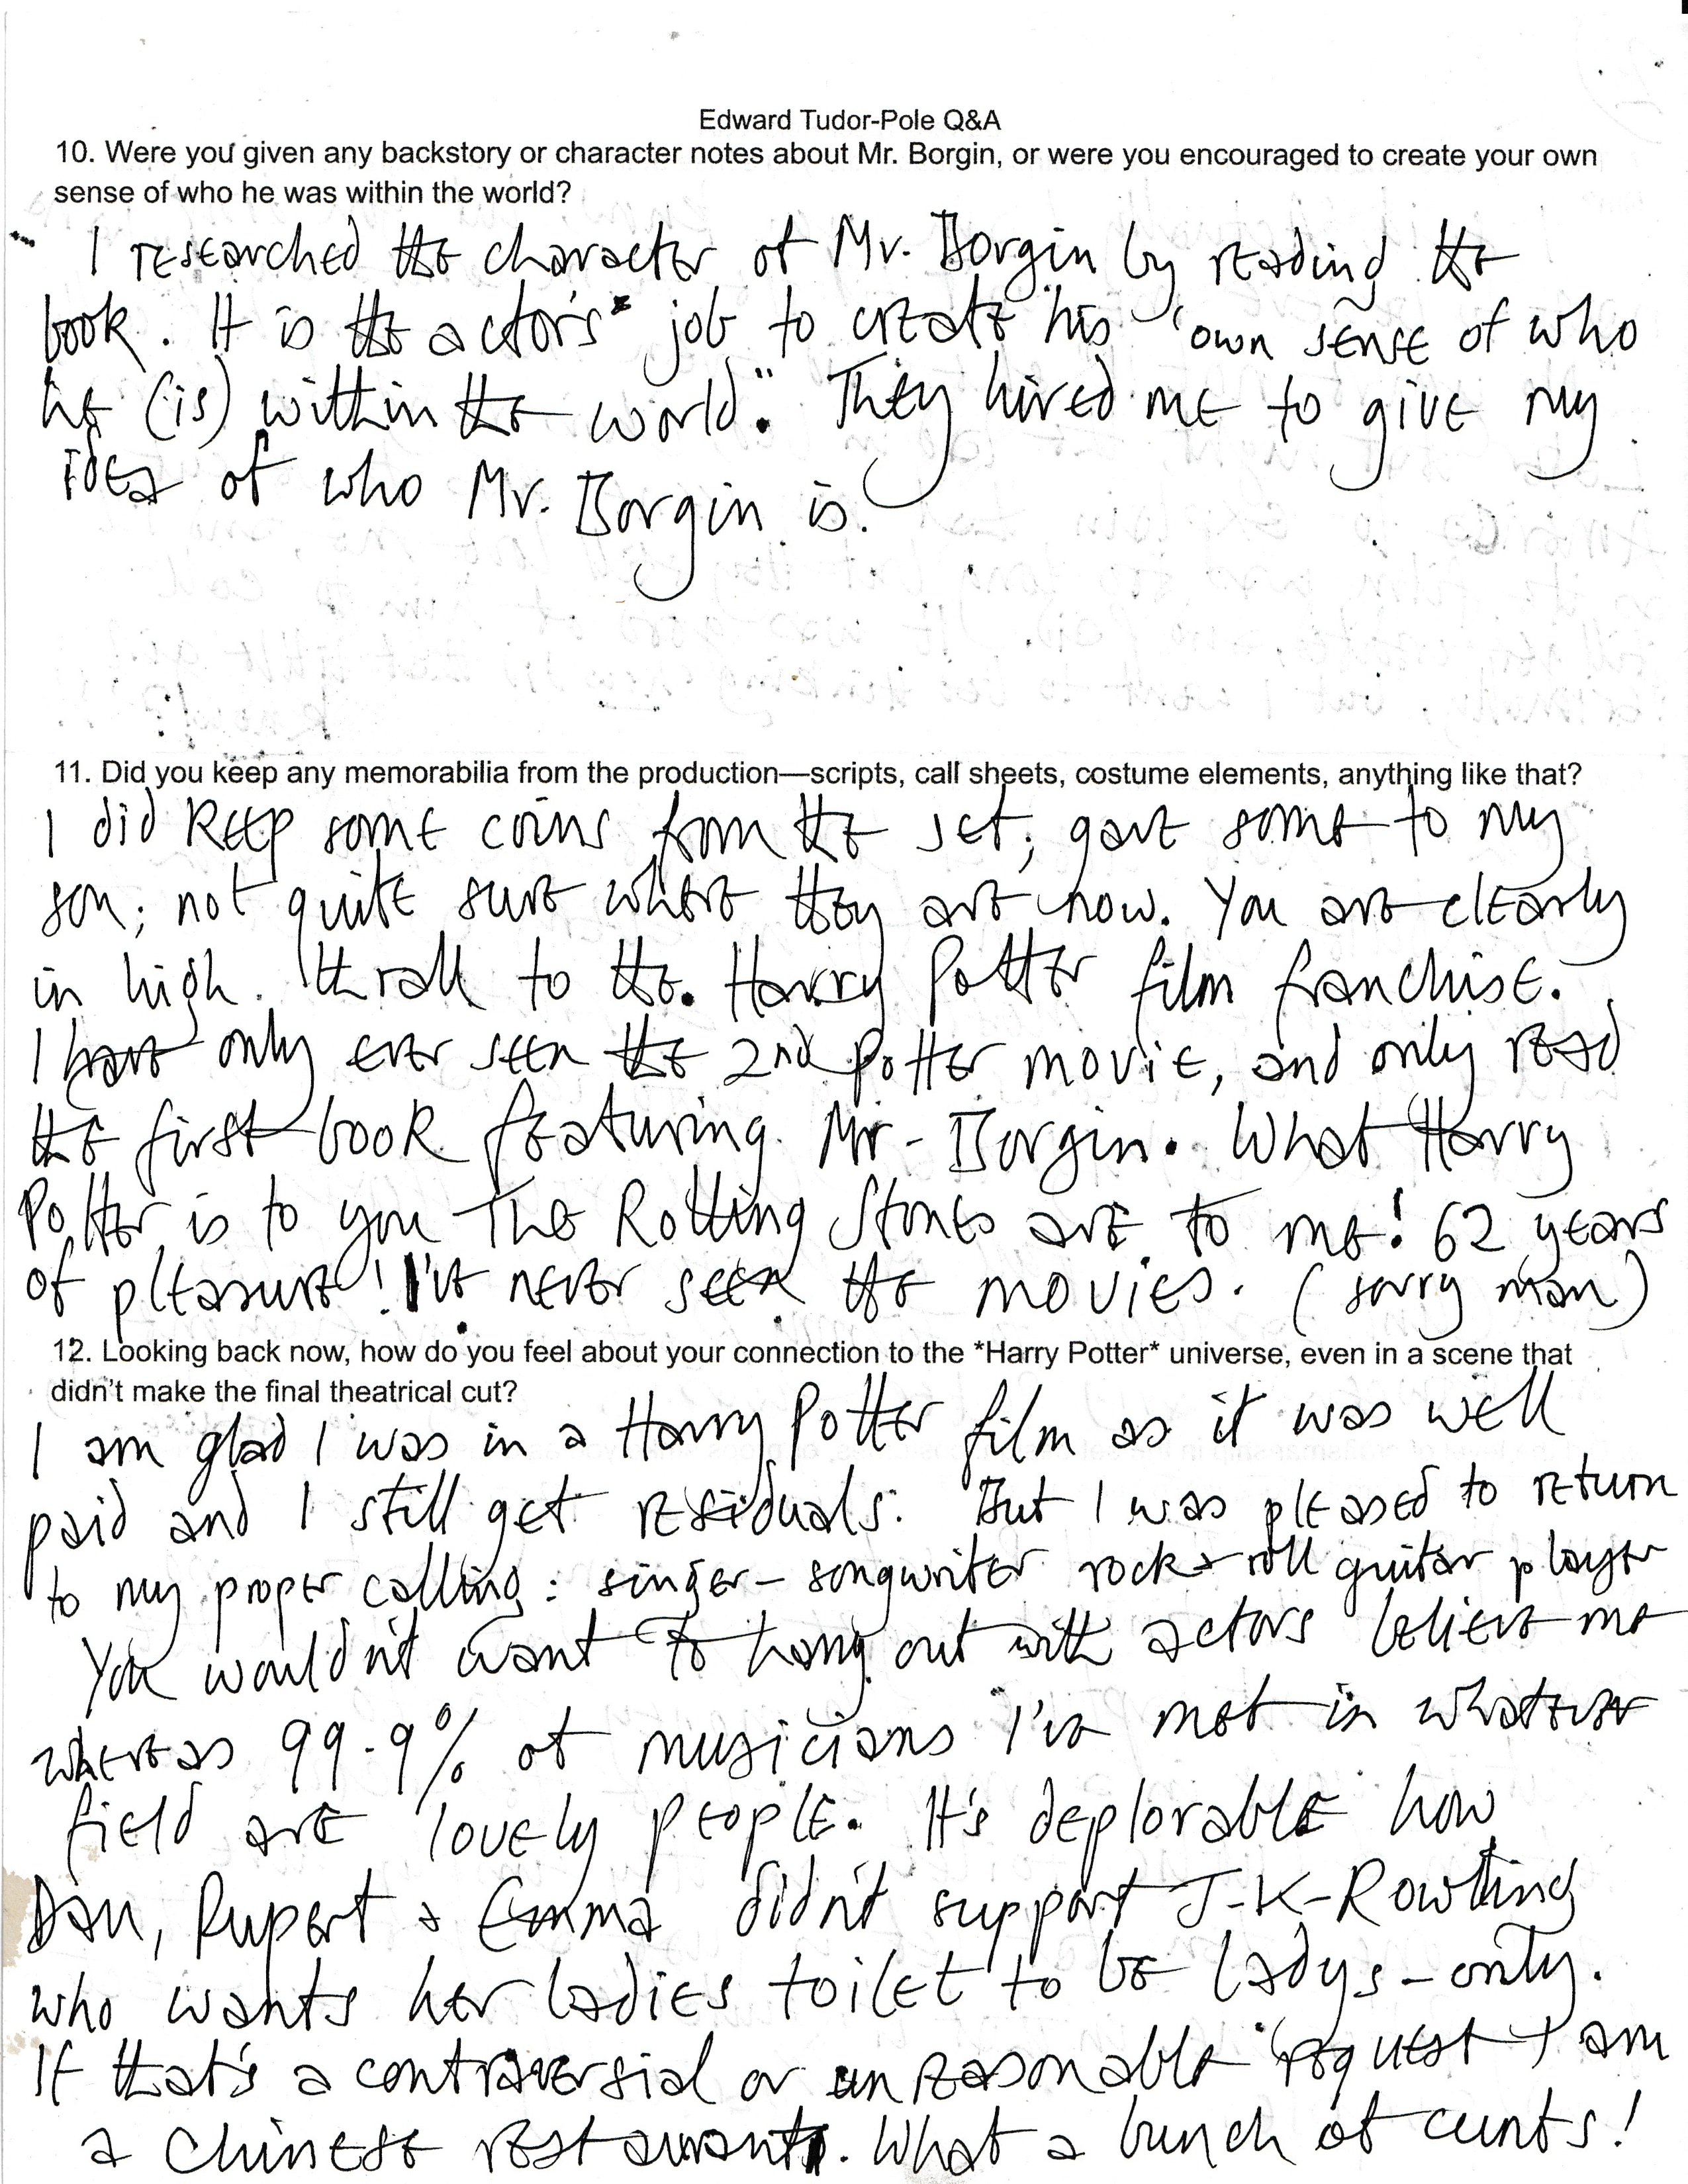 Edward Tudor-Pole Q&A
10. Were you given any backstory or character notes about Mr. Borgin, or were you encouraged to create your own
sense of who he was within the world?
I researched the character of Mr. Borgin by reading the
book. It is the actor's job to create his "own sense of who
he (is) within the world." They hired me to give my
idea of who Mr. Borgin is.
11. Did you keep any memorabilia from the production—scripts, call sheets, costume elements, anything like that?
I did keep some coins from the set; gave some to my
son; not quite sure where they are now. You are clearly
in high thrall to the Harry Potter film franchise.
I have only ever seen the 2nd Potter movie, and only read
the first book featuring Mr. Borgin. What Harry
Potter is to you The Rolling Stones are to me! 62 years
of pleasure! I've never seen the movies. (sorry man)
12. Looking back now, how do you feel about your connection to the *Harry Potter* universe, even in a scene that
didn't make the final theatrical cut?
I am glad I was in a Harry Potter film as it was well
paid and I still get residuals. But I was pleased to return
to my proper calling: singer-songwriter rock & roll guitar player
You wouldn't want to hang out with actors believe me
whereas 99.9% of musicians I've met in whatever
field are lovely people. It's deplorable how
Dan, Rupert & Emma didn't support J-K-Rowling
who wants her ladies toilet to be ladys-only.
If that's a contraversial or unreasonable request I am
a Chinese restaurant. What a bunch of cunts!